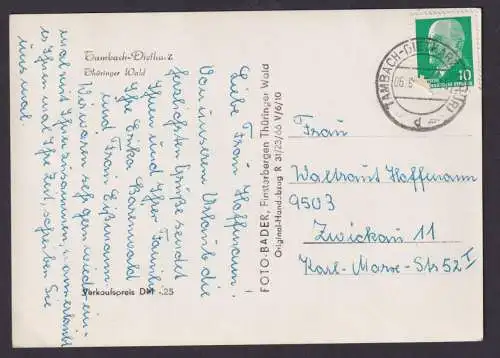 Tambach-Dietharz
Thüringer Wald
Liebe Frau Hoffmann!
Von unserem Urlaub die
herzlichsten Grüße sendet
Ihnen und Ihrer Familie
Ihre Erika Scharenwald
und Frau
Wir waren sehr gern wieder ein-
mal mit Ihnen zusammen, wenn erlaubt
es Ihnen mal Ihre Zeit, schreiben Sie
uns mal.
Verkaufspreis DM -.25
FOTO-BADER, Finsterbergen Thüringer Wald
Original-Handabzug R 31/23/66 V/6/10
TAMBACH-DIETHARZ
10
Frau
Waltraut Hoffmann
9503
Zwickau 11
Karl-Marx-Str 52 I